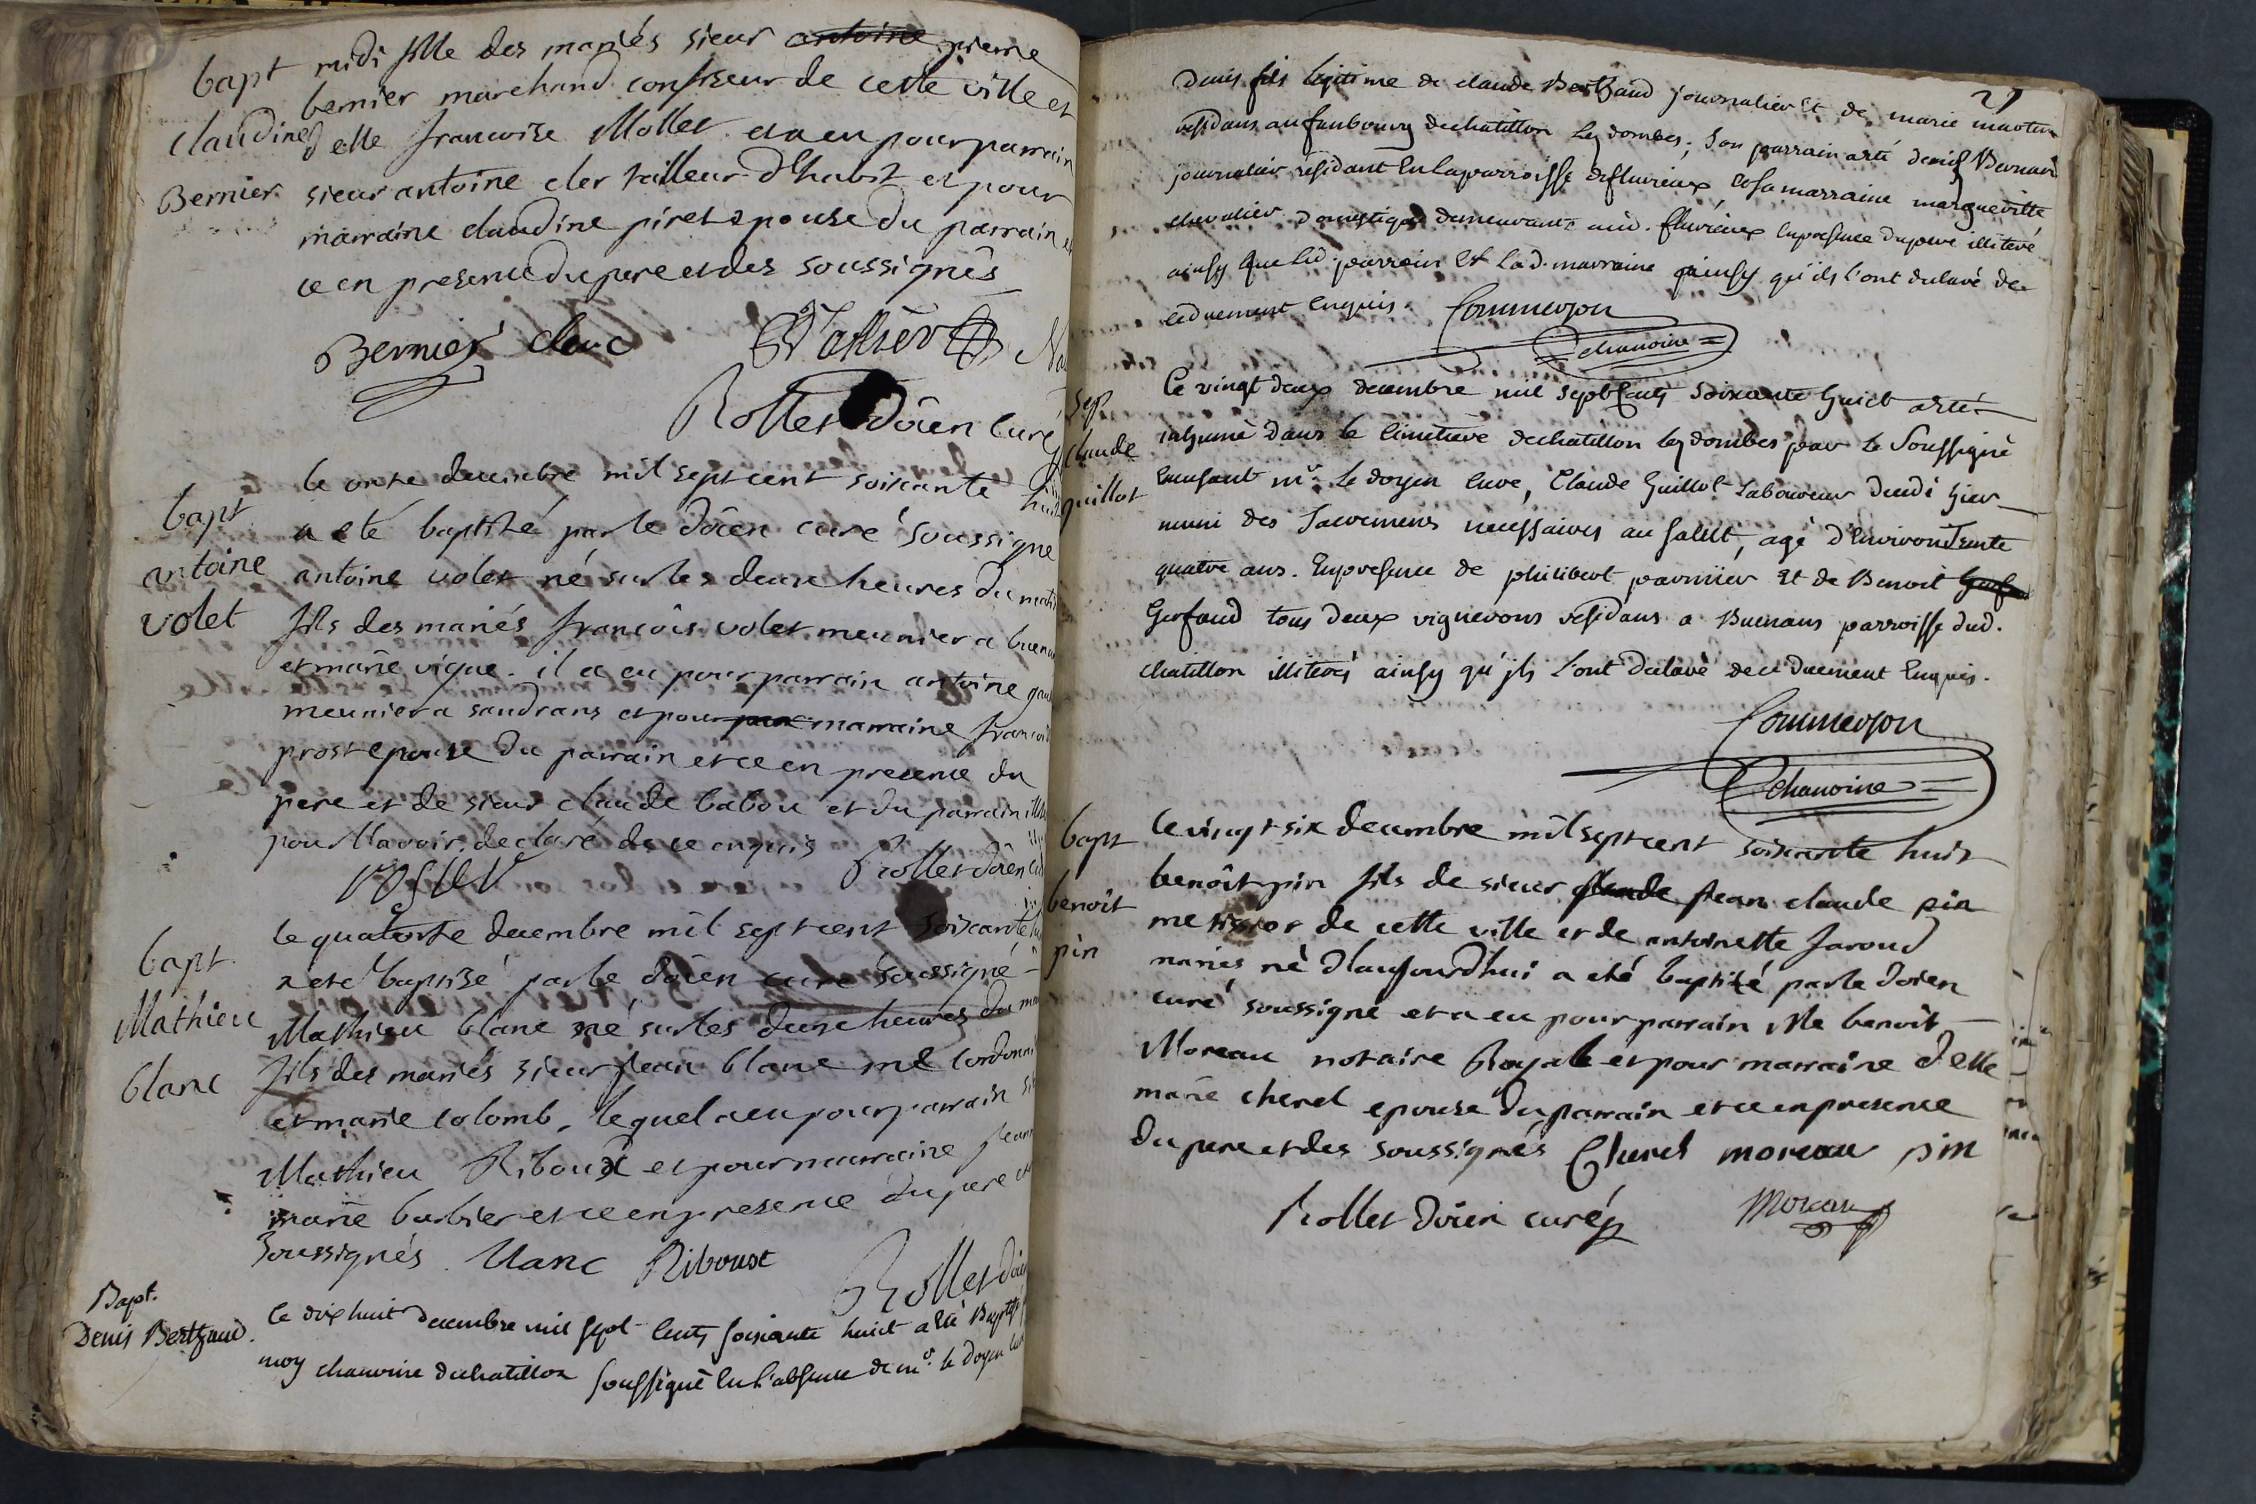 bapt
claudine
Bernier
midi fille des mariés sieur antoine pierre
bernier marchand confiseur de cette ville et
delle francoise Mollet et a eu pour parrain
sieur antoine cler tailleur d'habit et pour
marraine claudine piret epouse du parrain et
ce en presence du pere et des soussignés
Bernier clerc
Rollet doïen curé
bapt
antoine
volet
le onze decembre mil sept cent soixante huit
a eté baptisé par le doïen curé soussigne
antoine volet né sur les deux heures du matin
fils des mariés françois volet meunier a
et marie vigue. il a eu pour parrain antoine
meunier a sandrans et pour marraine
prost epouse du parrain et ce en presence du
pere et de sieur claude babou et du parrain
pour l'avoir declaré de ce enquis
Rollet doïen
bapt
Mathieu
blanc
le quatorze decembre mil sept cent soixante
a eté baptisé par le doïen curé soussigné
Mathieu blanc né sur les deux heures du
fils des mariés sieur jean blanc me
et marie colomb, lequel a eu pour parrain
Mathieu Riboux et pour marraine
marie barbier et ce en presence du pere
soussignés. blanc Riboux
Rollet
Bapt.
Denis Berthaud.
le dix huit decembre mil sept cents soixante huict a eté
moy chanoine de chatillon soussigné en l'absence de mr. le doyen
29
Denis fils legitime de claude Berthaud journalier et de marie martin
residans au faubourg de chatillon les dombes; son parrain a eté denis
journalier résidant en la parroisse de flurieux et sa marraine margueritte
chevalier domestique demeurante aud. fluriéux en presence du pere
ainsy que led. parrain et lad. marraine ainsy qu'ils l'ont declaré de
ce duement enquis.
Commerson
chanoine
sep
claude
guillot
le vingt deux decembre mil sept cents soixante huict a eté
inhumé dans le cimetière de chatillon les dombes par le soussigné
en absent mr. le doyen curé, Claude Guillot laboureur hier
muni des sacremens necessaires au salut, agé d'environ trente
quatre ans. en presence de philibert parmier et de Benoit
Gerfaud tous deux vignerons residans a Buenans parroisse dud.
chatillon ainsy qu'ils l'ont declaré de ce duement enquis.
Commerson
chanoine
bapt
benoît
pin
le vingt six decembre mil sept cent soixante huit
benoît pin fils de sieur claude jean claude pin
me de cette ville et de antoinette
mariés né d'laujourd'hui a eté baptisé par le doïen
curé soussigné et a eu pour parrain Me benoît
Moreau notaire Royale et pour marraine delle
marie cherel epouse du parrain et ce en presence
du pere et des soussignés Cherel moreau pin
Rollet doïen curé
moreau